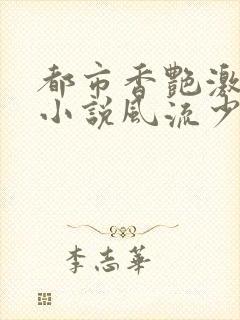 都市香艷激
小說風流少
李志華